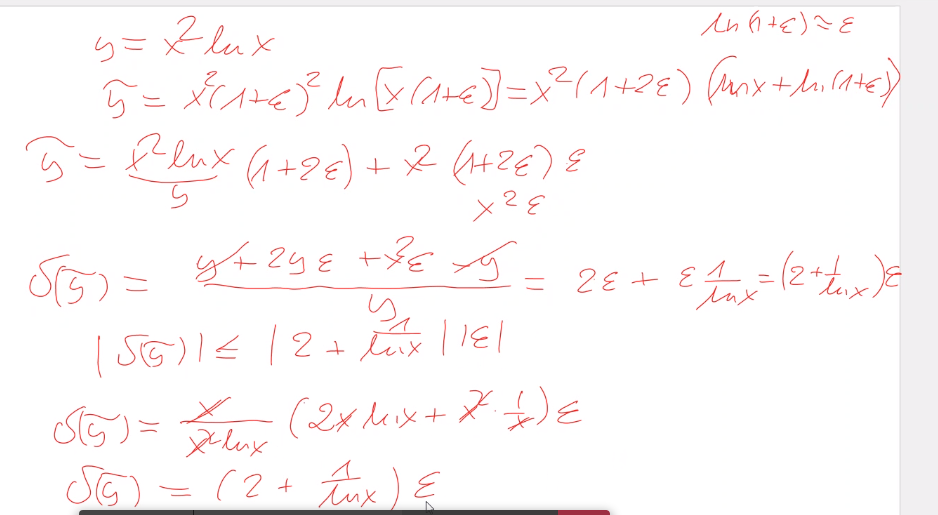 ln(1+ε)≈ε
y = x² ln x
ỹ = x²(1+ε)² ln[x(1+ε)] = x²(1+2ε)(ln x + ln(1+ε))
ỹ = x² ln x (1+2ε) + x² (1+2ε) ε
y
x² ε
δ(ỹ) = (y + 2yε + x²ε - y)/y = 2ε + ε 1/ln x = (2 + 1/ln x)ε
|δ(ỹ)| ≤ |2 + 1/ln x| |ε|
δ(ỹ) = x/(x² ln x) (2x ln x + x² · 1/x) ε
δ(ỹ) = (2 + 1/ln x) ε